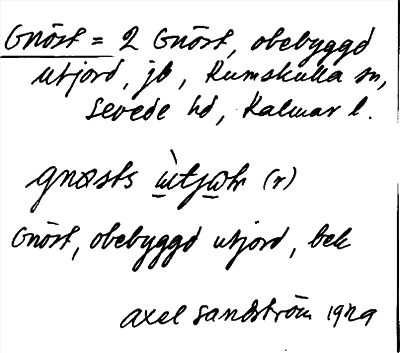 Gnöst = 2 Gnöst, obebyggd
utjord, jb, Rumskulla sn,
Sevede hd, Kalmar l.
gnøsts ùtjωr (r)
Gnöst, obebyggd utjord, bek
Axel Sandström 1929